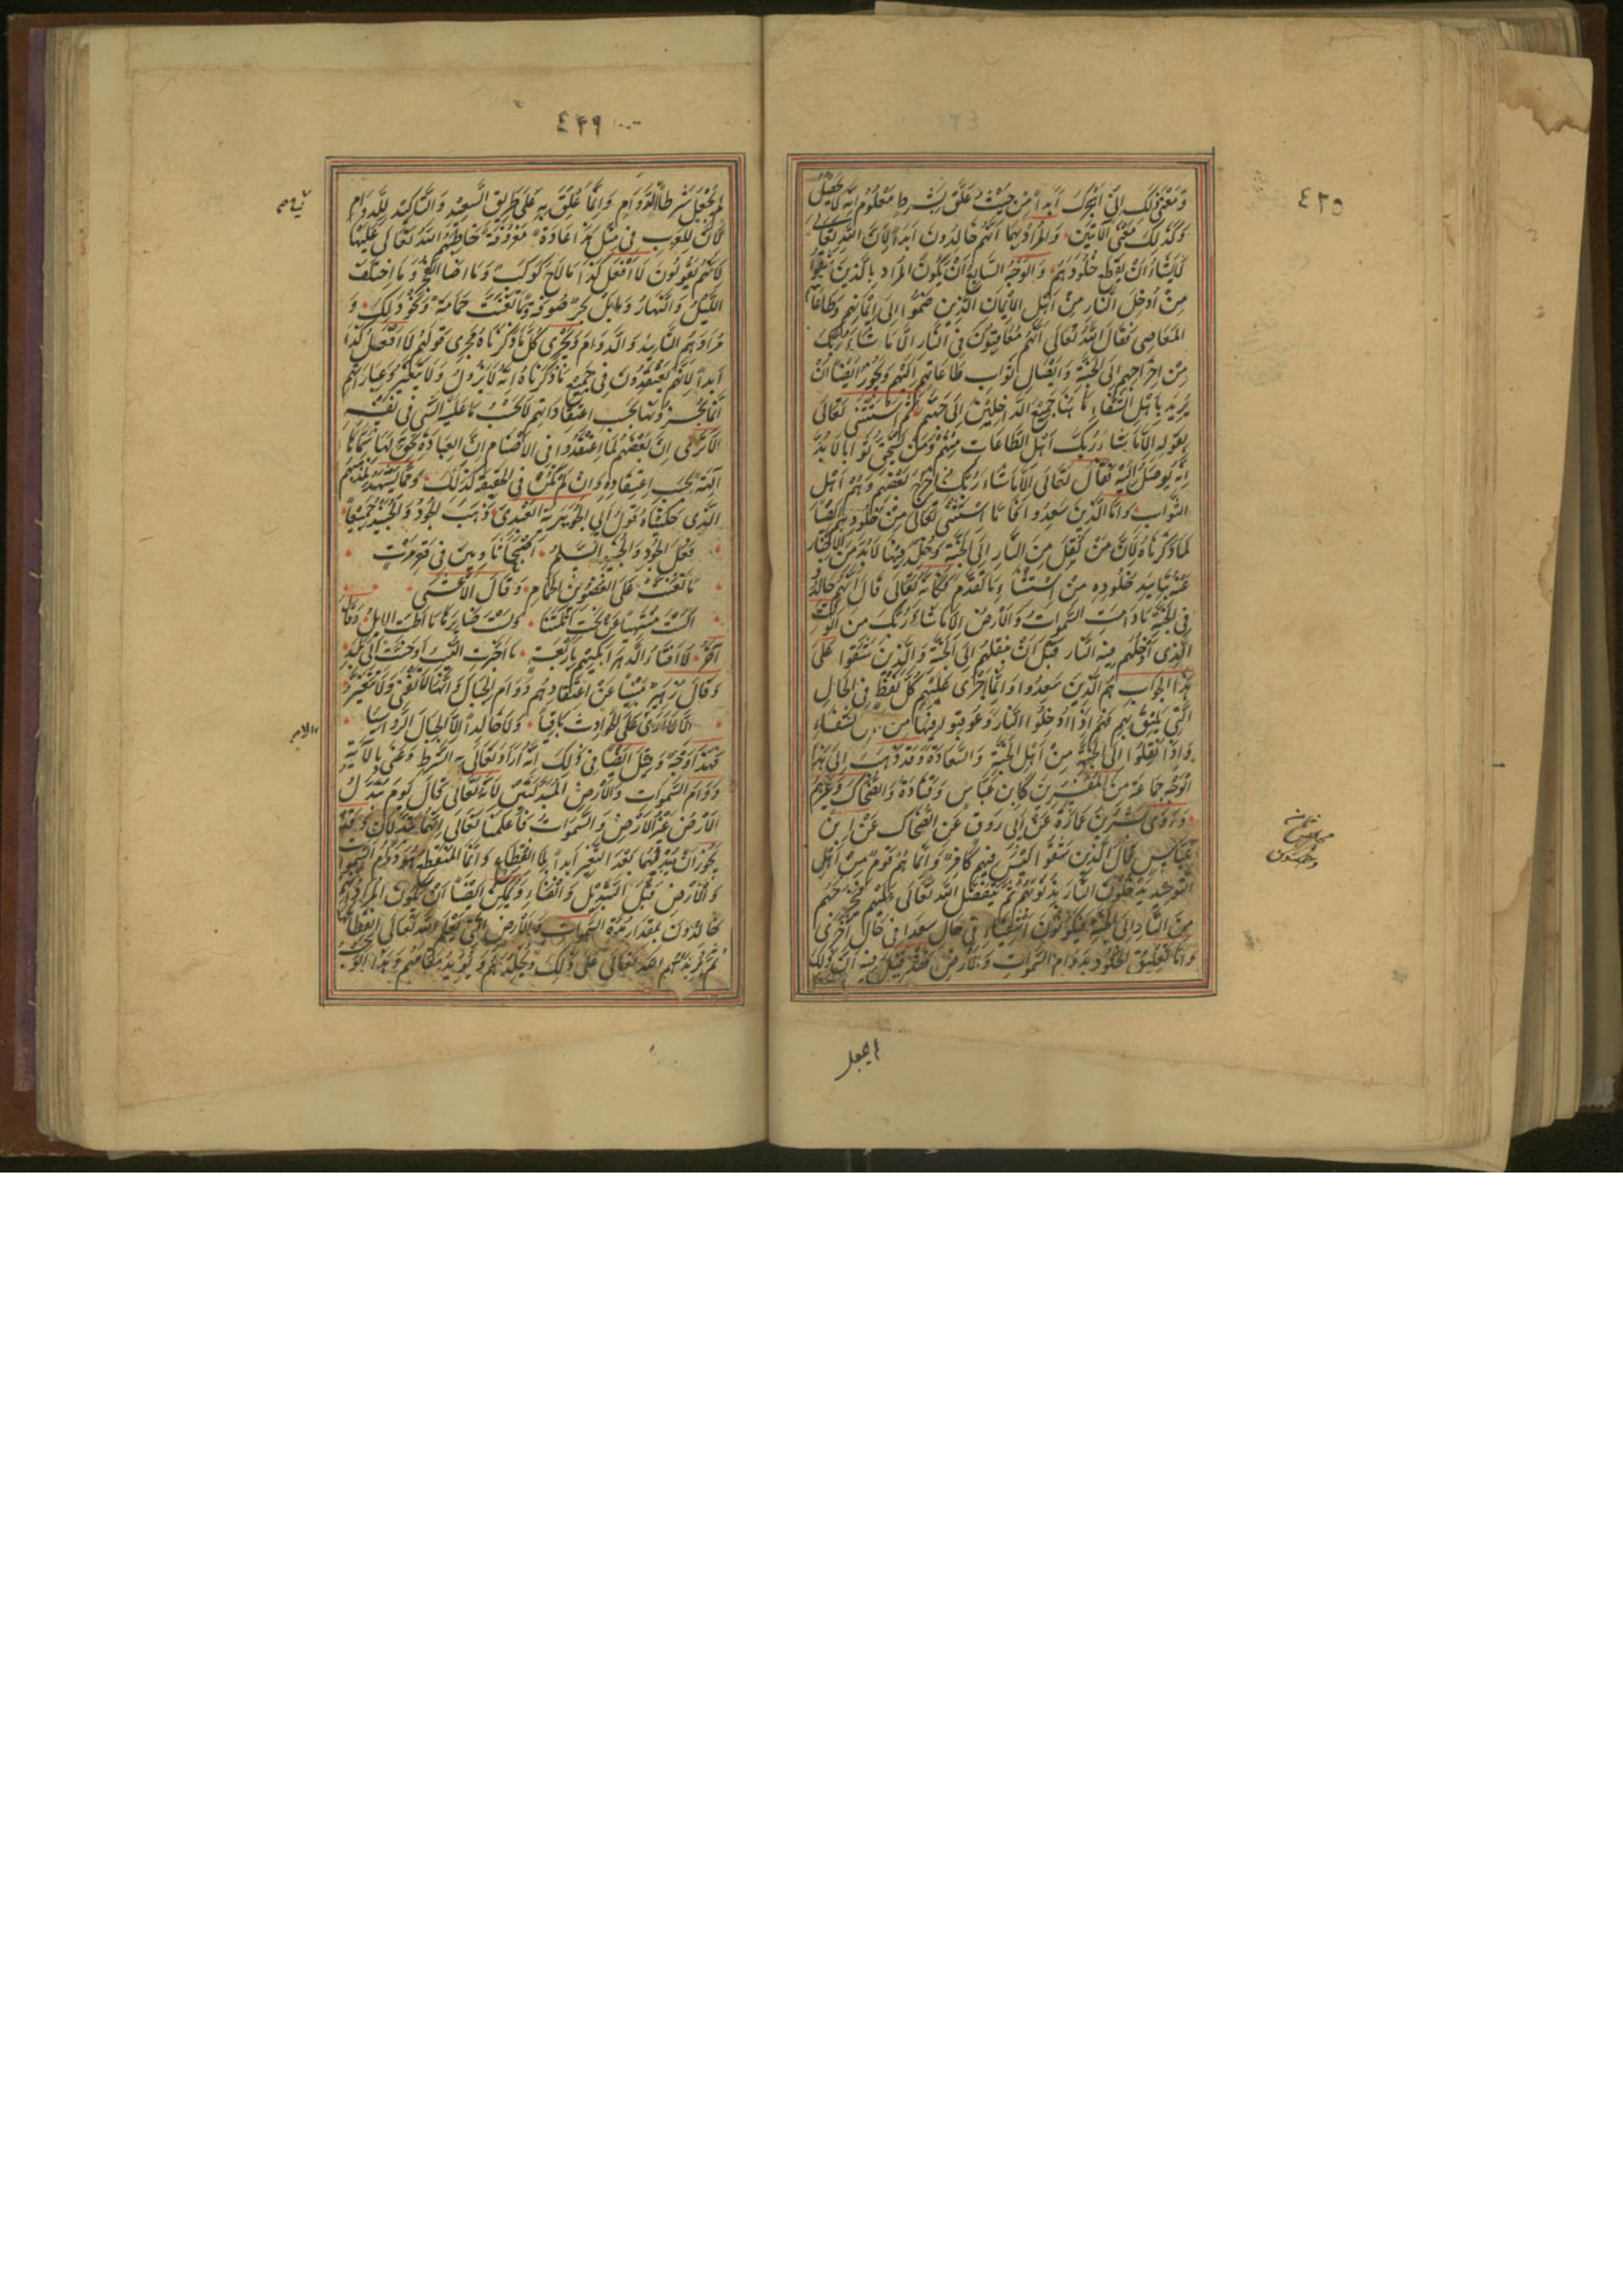 ٤٢٥
وَمَعْنى ذَلِكَ إِنِّي أَهْجُرُكَ أَبَداً مِنْ حَيْثُ عَلَّقَ بِشَرطٍ مَعْلُومٍ أَنَّهُ لَا يَحْصُلُ
وَكَذَلِكَ مَعْنَى الآيَتَيْنِ وَالْمُرَادُ بِهِمَا أَنَّهُمْ خَالِدُونَ أَبَداً لِأَنَّ اللهَ تَعَالَى
لَا يَشَاءُ أَنْ يَقْطَعَ خُلُودَهُمْ وَالْوَجْهُ السَّابِعُ أَنْ يَكُونَ الْمُرَادُ بِالَّذِينَ شَقُوا
مِنْ أُدْخِلَ النَّارَ مِنْ أَهْلِ الْإِيمَانِ الَّذِينَ ضَمُّوا إِلَى إِيمَانِهِمْ وَطَاعَاتِهِمُ
الْمَعَاصِي فَقَالَ اللهُ تَعَالَى أَنَّهُمْ مُعَاقَبُونَ فِي النَّارِ إِلَّا مَا شَاءَ رَبُّكَ
مِنْ إِخْرَاجِهِمْ إِلَى الْجَنَّةِ وَإِيصَالِ ثَوَابِ طَاعَاتِهِمْ إِلَيْهِمْ وَيَجُوزُ أَيْضاً أَنْ
يُرِيدَ بِأَهْلِ الشَّقَاءِ هَاهُنَا جَمِيعَ الدَّاخِلِينَ إِلَى جَهَنَّمَ ثُمَّ اسْتَثْنَى تَعَالَى
بِقَوْلِهِ إِلَّا مَا شَاءَ رَبُّكَ أَهْلَ الطَّاعَاتِ مِنْهُمْ وَمَنْ يَسْتَحِقُّ ثَوَاباً لَا بُدَّ
أَنْ يُوصَلَ إِلَيْهِ فَقَالَ تَعَالَى إِلَّا مَا شَاءَ رَبُّكَ مِنْ إِخْرَاجِ بَعْضِهِمْ وَهُمْ أَهْلُ
الثَّوَابِ وَأَمَّا الَّذِينَ سُعِدُوا فَإِنَّمَا اسْتَثْنَى تَعَالَى مِنْ خُلُودِهِمْ أَيْضاً
لِمَا ذَكَرْنَاهُ لِأَنَّ مَنْ نُقِلَ مِنَ النَّارِ إِلَى الْجَنَّةِ وَخُلِّدَ فِيهَا لَا بُدَّ مِنَ الْإِخْبَارِ
عَنْهُ بِتَأْبِيدِ خُلُودِهِ مِنِ اسْتِثْنَاءِ مَا تَقَدَّمَ فَكَأَنَّهُ تَعَالَى قَالَ إِنَّهُمْ خَالِدُونَ
فِي الْجَنَّةِ مَا دَامَتِ السَّمَوَاتُ وَالْأَرْضُ إِلَّا مَا شَاءَ رَبُّكَ مِنَ الْوَقْتِ
الَّذِي أَدْخَلَهُمْ فِيهِ النَّارَ قَبْلَ أَنْ يَنْقُلَهُمْ إِلَى الْجَنَّةِ وَالَّذِينَ شَقُوا عَلَى
هَذَا الْجَوَابِ هُمُ الَّذِينَ سُعِدُوا وَإِنَّمَا أُجْرِيَ عَلَيْهِمْ كُلُّ لَفْظٍ فِي الْحَالِ
الَّتِي تَلِيقُ بِهِمْ فَهُمْ إِذَا أُدْخِلُوا النَّارَ وَعُوقِبُوا فِيهَا مِنْ أَهْلِ الشَّقَاءِ
وَإِذَا نُقِلُوا إِلَى الْجَنَّةِ مِنْ أَهْلِ الْجَنَّةِ وَالسَّعَادَةِ وَقَدْ ذَهَبَ إِلَى هَذَا
الْوَجْهِ جَمَاعَةٌ مِنَ الْمُفَسِّرِينَ كَابْنِ عَبَّاسٍ وَقَتَادَةَ وَالضَّحَّاكِ وَغَيْرِهِمْ
وَرَوَى بِشْرُ بْنُ عُمَارَةَ عَنْ أَبِي رَوْقٍ عَنِ الضَّحَّاكِ عَنِ ابْنِ
عَبَّاسٍ قَالَ الَّذِينَ شَقُوا لَيْسَ فِيهِمْ كَافِرٌ وَإِنَّمَا هُمْ قَوْمٌ مِنْ أَهْلِ
التَّوْحِيدِ يَدْخُلُونَ النَّارَ بِذُنُوبِهِمْ ثُمَّ يَتَفَضَّلُ اللهُ تَعَالَى عَلَيْهِمْ فَيُخْرِجُهُمْ
مِنَ النَّارِ إِلَى الْجَنَّةِ فَيَكُونُونَ أَشْقِيَاءَ فِي حَالٍ سُعَدَاءَ فِي حَالٍ أُخْرَى
وَأَمَّا تَعْلِيقُ الْخُلُودِ بِدَوَامِ السَّمَوَاتِ وَالْأَرْضِ فَقَدْ قِيلَ فِيهِ إِنَّ ذَلِكَ
لم يجعل
٤٢٦
لَمْ يُجْعَلْ شَرْطاً لِلدَّوَامِ وَإِنَّمَا عُلِّقَ بِهِ عَلَى طَرِيقِ التَّبْعِيدِ وَالتَّأْكِيدِ لِلدَّوَامِ
لِأَنَّ لِلْعَرَبِ فِي مِثْلِ هَذَا عَادَةً مَعْرُوفَةً خَاطَبَهُمُ اللهُ تَعَالَى عَلَيْهَا
لِأَنَّهُمْ يَقُولُونَ لَا أَفْعَلُ كَذَا مَا لَاحَ كَوْكَبٌ وَمَا أَضَاءَ الْفَجْرُ وَمَا اخْتَلَفَ
اللَّيْلُ وَالنَّهَارُ وَمَا بَلَّ بَحْرٌ صُوفَةً وَمَا تَغَنَّتْ حَمَامَةٌ وَنَحْوُ ذَلِكَ وَ
مُرَادُهُمُ التَّأْبِيدُ وَالدَّوَامُ وَيَجْرِي كُلُّ مَا ذَكَرْنَاهُ مَجْرَى قَوْلِهِمْ لَا أَفْعَلُ كَذَا
أَبَداً لِأَنَّهُمْ يَعْتَقِدُونَ فِي جَمِيعِ مَا ذَكَرْنَاهُ أَنَّهُ لَا يَزُولُ وَلَا يَتَغَيَّرُ وَعِبَارَاتُهُمْ
إِنَّمَا يُخْرِجُونَهَا بِحَسَبِ اعْتِقَادَاتِهِمْ لَا بِحَسَبِ مَا عَلَيْهِ الشَّيْءُ فِي نَفْسِهِ
أَلَا تَرَى إِنَّ بَعْضَهُمْ لَمَّا اعْتَقَدُوا فِي الْأَصْنَامِ إِنَّ الْعِبَادَةَ تَحِقُّ لَهَا سَمَّاهَا
آلِهَةً بِحَسَبِ اعْتِقَادِهِ وَإِنْ لَمْ تَكُنْ فِي الْحَقِيقَةِ كَذَلِكَ وَمِمَّا يَشْهَدُ لِمَذْهَبِهِمُ
الَّذِي حَكَيْنَاهُ قَوْلُ أَبِي الْجُوَيْرِيَةِ الْعَبْدِيِّ ذَهَبَ الْجُودُ وَالْجُنَيْدُ جَمِيعاً
فَعَلَى الْجُودِ وَالْجُنَيْدِ السَّلَامُ أَصْبَحَا ثَاوِيَيْنِ فِي قَعْرِ مَرْتٍ
مَا تَغَنَّتْ عَلَى الْغُصُونِ الْحَمَامُ وَقَالَ الْأَعْشَى
أَلَسْتَ مُنْتَهِياً عَنْ نَحْتِ أَثْلَتِنَا وَلَسْتَ ضَائِرَهَا مَا أَطَّتِ الْإِبِلُ وَقَالَ
آخَرُ لَا أَفْتَأُ الدَّهْرَ أَبْكِيهِمْ بِأَرْبَعَةٍ مَا اجْتَرَّتِ النِّيبُ أَوْ حَنَّتْ إِلَى بَلَدِ
وَقَالَ زُهَيْرٌ مُبِيناً عَنْ اعْتِقَادِهِمْ دَوَامَ الْجِبَالِ وَأَنَّهَا لَا تَفْنَى وَلَا تَتَغَيَّرُ
أَلَا لَا أَرَى عَلَى الْحَوَادِثِ بَاقِياً وَلَا خَالِداً إِلَّا الْجِبَالَ الرَّوَاسِيَا
فَهَذَا وَجْهٌ وَقِيلَ أَيْضاً فِي ذَلِكَ إِنَّهُ أَرَادَ تَعَالَى بِهِ الشَّرْطَ وَعَنَى بِالْآيَةِ
دَوَامَ السَّمَوَاتِ وَالْأَرْضِ الْمُبَدَّلَتَيْنِ لِأَنَّهُ تَعَالَى قَالَ يَوْمَ تُبَدَّلُ
الْأَرْضُ غَيْرَ الْأَرْضِ وَالسَّمَوَاتُ فَأَعْلَمَنَا تَعَالَى أَنَّهُمَا تُبَدَّلَانِ وَقَدْ
يَجُوزُ أَنْ يُدِيمَهُمَا بَعْدَ التَّغْيِيرِ أَبَداً بِلَا انْقِطَاعٍ وَإِنَّمَا الْمُنْقَطِعُ هُوَ دَوَامُ السَّمَوَاتِ
وَالْأَرْضِ قَبْلَ التَّبْدِيلِ وَالْفَنَاءِ وَيُمْكِنُ أَيْضاً أَنْ يَكُونَ الْمُرَادُ أَنَّهُمْ
خَالِدُونَ بِمِقْدَارِ مُدَّةِ السَّمَوَاتِ وَالْأَرْضِ الَّتِي يَعْلَمُ اللهُ تَعَالَى انْقِطَاعَهَا
ثُمَّ يَزِيدُهُمُ اللهُ تَعَالَى عَلَى ذَلِكَ وَيُخَلِّدُهُمْ وَيُؤَبِّدُ مَقَامَهُمْ وَهَذَا الْوَجْهُ